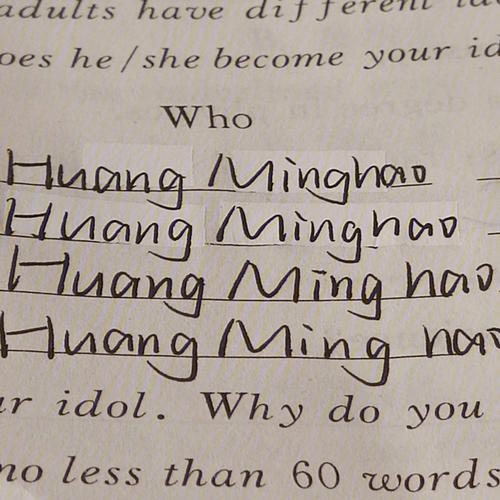 adults have different
oes he/she become your id
Who
Huang Minghao
Huang Minghao
Huang Ming hao
Huang Ming hao
ur idol. Why do you
no less than 60 words